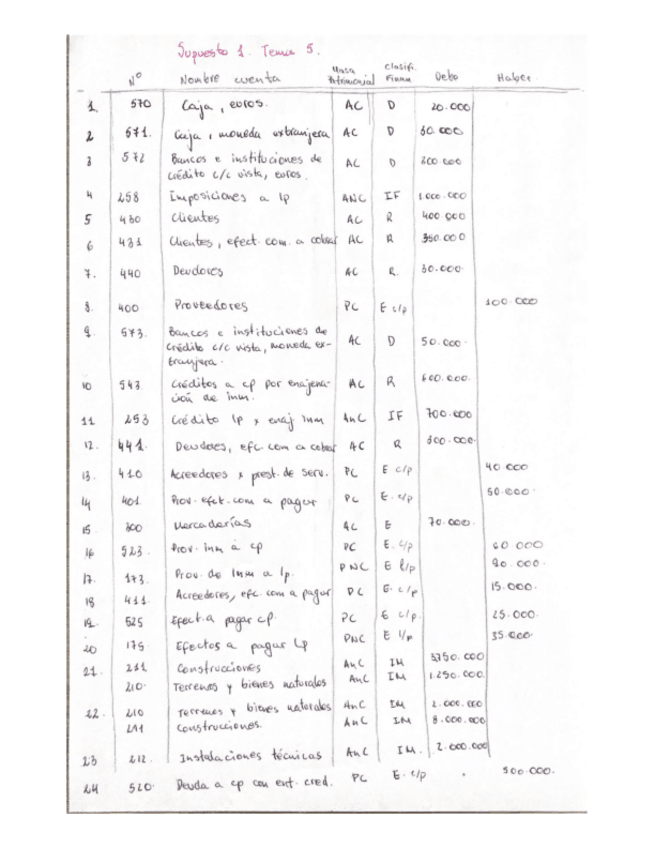 Supuesto 1. Tema 5.
Nº Nombre cuenta Masa Patrimonial Clasifi. Finan Debe Haber.
1. 570 Caja, euros. AC D 20.000
2 571. Caja, moneda extranjera AC D 30.000
3 572 Bancos e instituciones de
crédito c/c vista, euros. AC D 200.000
4 258 Imposiciones a lp ANC IF 1.000.000
5 430 Clientes AC R 400.000
6 431 Clientes, efect. com. a cobrar AC R 350.000
7. 440 Deudores AC R. 30.000.
8. 400 Proveedores PC E c/p 100.000
9. 573. Bancos e instituciones de
crédito c/c vista, moneda ex-
tranjera. AC D 50.000.
10 543 Créditos a cp por enajena-
ción de inm. AC R 600.000.
11 253 Crédito lp x enaj inm AnC IF 700.000
12. 441. Deudores, efc. com a cobrar AC R 300.000.
13. 410 Acreedores x prest. de serv. PC E c/p 40 000
14 401 Prov. efct. com a pagar PC E. c/p 50.000.
15 300 Mercaderías AC E 70.000.
16 523. Prov. inm a cp PC E. c/p 60 000
17. 173. Prov. de Inm a lp. PNC E l/p 90.000.
18 411. Acreedores, efc. com a pagar PC E. c/p 15.000.
19. 525 Efect. a pagar cp. PC E c/p. 25.000.
20 175 Efectos a pagar Lp PNC E l/p 35.000.
21. 211 Construcciones AnC IM 3750.000
210. Terrenos y bienes naturales AnC IM 1.250.000
22. 210 Terrenos y bienes naturales AnC IM 2.000.000
211 Construcciones. AnC IM 8.000.000
23 212. Instalaciones técnicas AnC IM. 2.000.000
24 520. Deuda a cp con ent. cred. PC E. c/p 500.000.